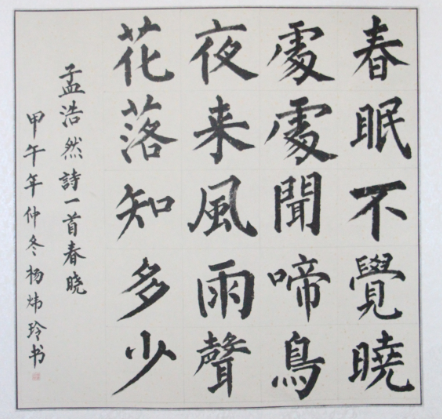 春眠不覺曉
處處聞啼鳥
夜来風雨聲
花落知多少
孟浩然詩一首春晓
甲午年仲冬杨炜玲书